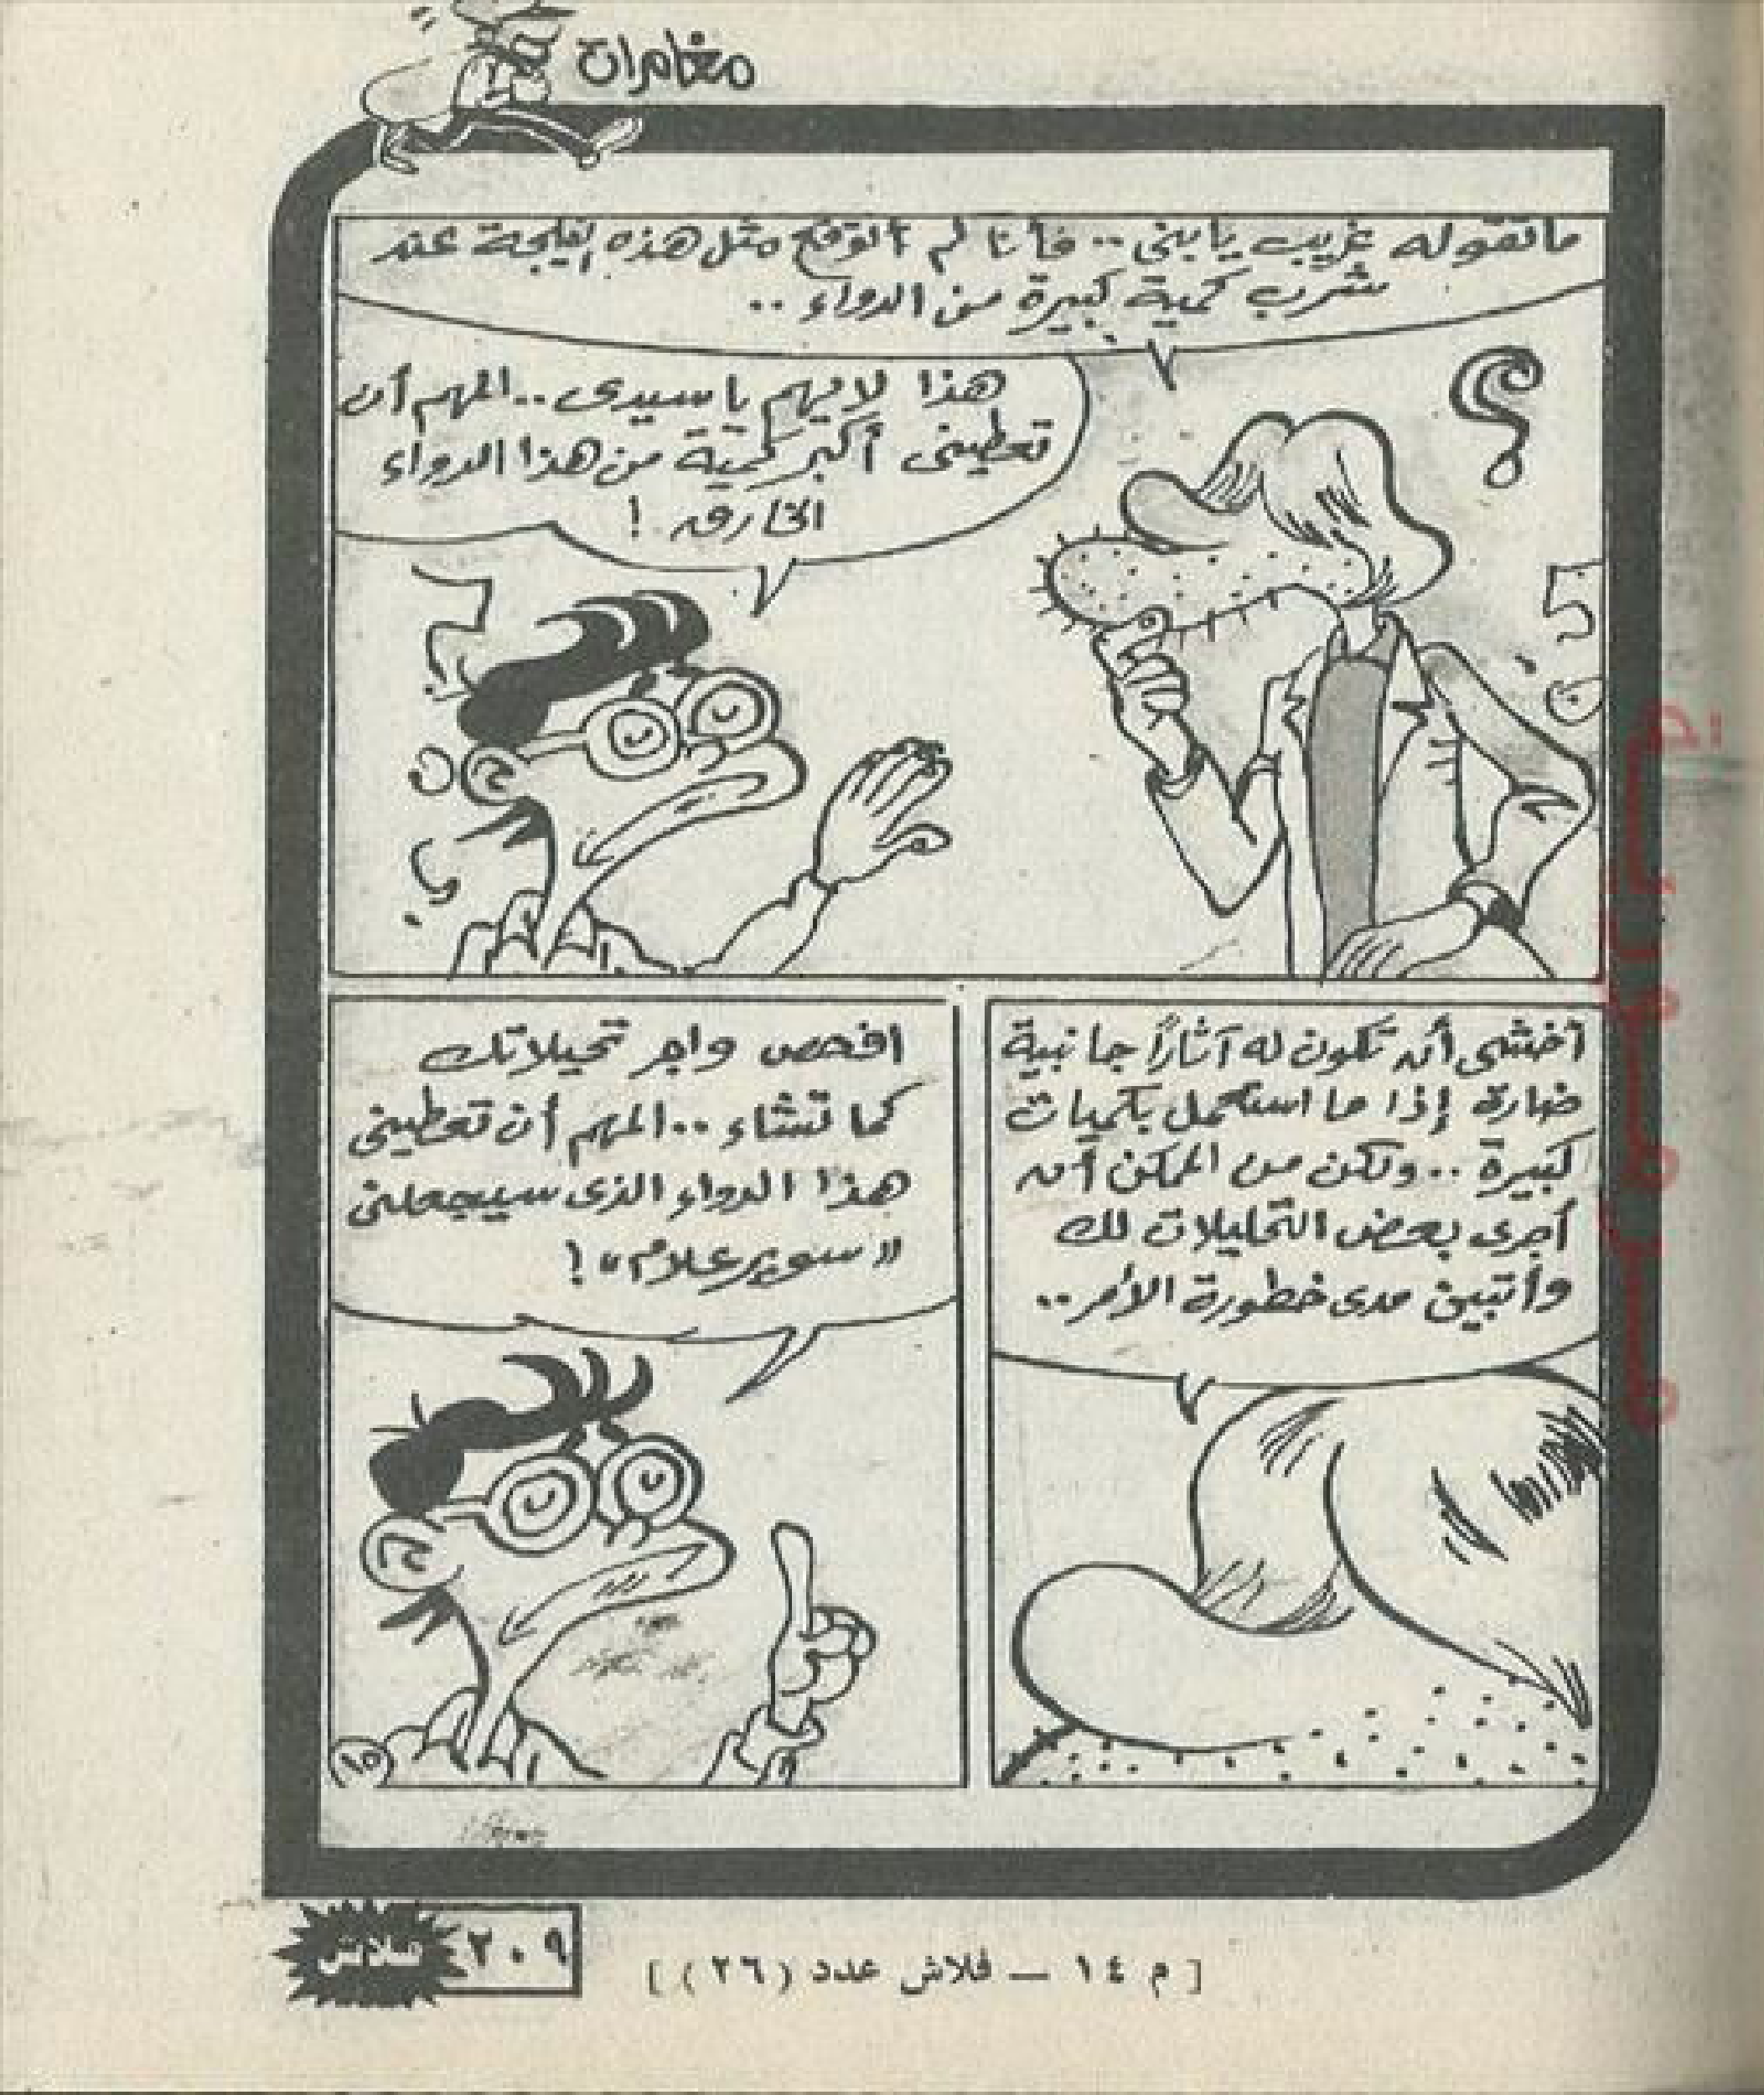 مغامرات
ما تقوله غريب يا بنى .. فأنا لم أتوقع مثل هذه النتيجة عند
شرب كمية كبيرة من الدواء ..
هذا لا يهم يا سيدى .. المهم أن
تعطينى أكبر كمية من هذا الدواء
الخارق !
أخشى أن تكون له آثاراً جانبية
ضارة إذا ما استعمل بكميات
كبيرة .. ولكن من الممكن أن
أجرى بعض التحليلات لك
وأتبين مدى خطورة الأمر ..
افحص واجر تحيلاتك
كما تشاء .. المهم أن تعطينى
هذا الدواء الذى سيجعلنى
"سوبر علام" !
١٥
فلاش ٢٠٩
[ م ١٤ — فلاش عدد ( ٢٦ ) ]